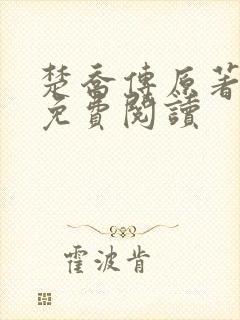 楚喬傳原著
免費閱讀
霍波肯